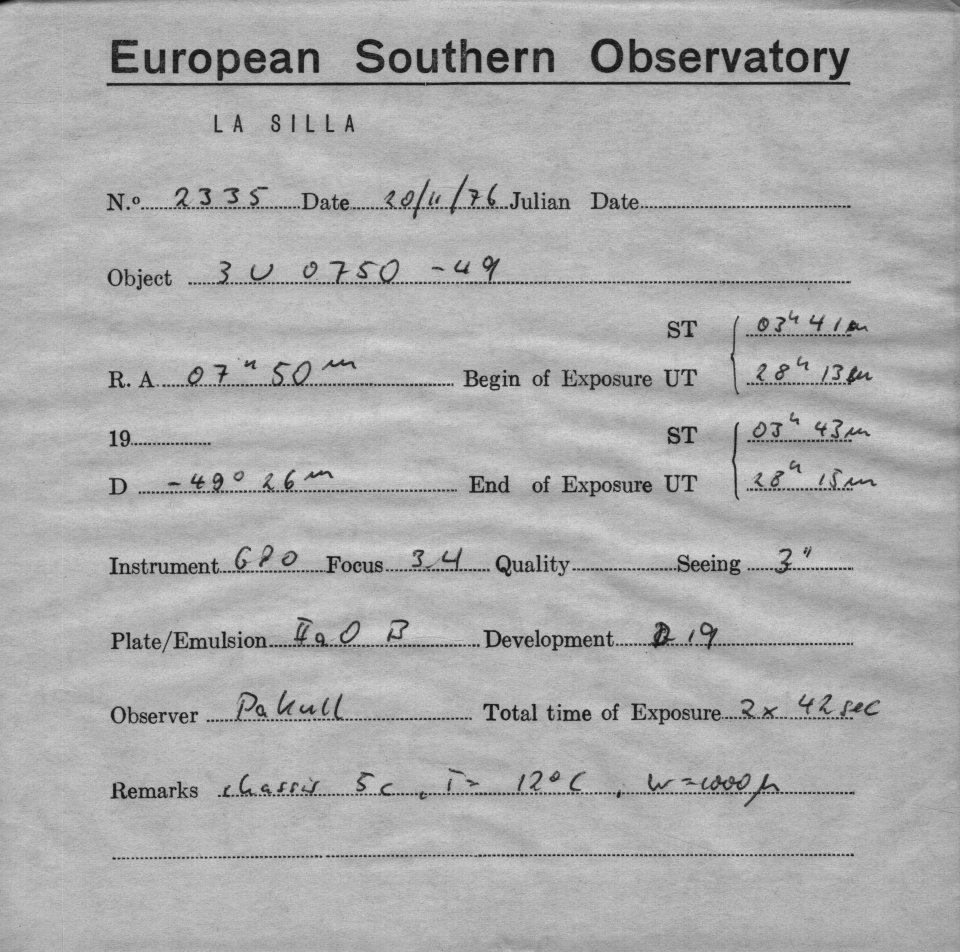 European Southern Observatory
LA SILLA
N.º 2335 Date 20/11/76 Julian Date
Object 3U 0750 -49
ST 03h 41m
R. A. 07h 50m Begin of Exposure UT 28h 13m
19 ST 03h 43m
D -49° 26m End of Exposure UT 28h 15m
Instrument GPO Focus 34 Quality Seeing 3"
Plate/Emulsion IIaO B Development D19
Observer Pakull Total time of Exposure 2x 42sec
Remarks chassis 5c, T= 12°C, W=1000μ